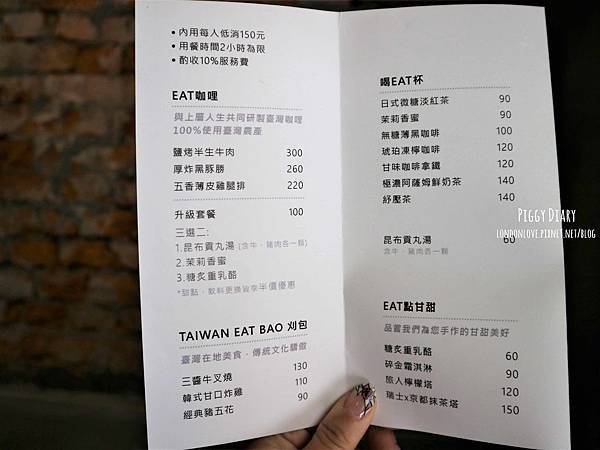 • 內用每人低消150元
• 用餐時間2小時為限
• 酌收10%服務費
EAT咖哩
與上層人生共同研製臺灣咖哩
100%使用臺灣農產
鹽烤半生牛肉 300
厚炸黑豚勝 260
五香薄皮雞腿排 220
升級套餐 100
三選二:
1.昆布貢丸湯 (含牛、豬肉各一顆)
2.茉莉香蜜
3.糖炙重乳酪
*甜點、飲料更換皆享半價優惠
TAIWAN EAT BAO 刈包
臺灣在地美食，傳統文化驕傲
三醬牛叉燒 130
韓式甘口炸雞 110
經典豬五花 90
喝EAT杯
日式微糖淡紅茶 90
茉莉香蜜 90
無糖薄黑咖啡 100
琥珀凍檸咖啡 120
甘味咖啡拿鐵 120
極濃阿薩姆鮮奶茶 140
紓壓茶 140
昆布貢丸湯 60
含牛、豬肉各一顆
EAT點甘甜
品嘗我們為您手作的甘甜美好
糖炙重乳酪 60
碎金霜淇淋 90
旅人檸檬塔 120
瑞士x京都抹茶塔 150
PIGGY DIARY
LONDONLOVE.PIXNET.NET/BLOG